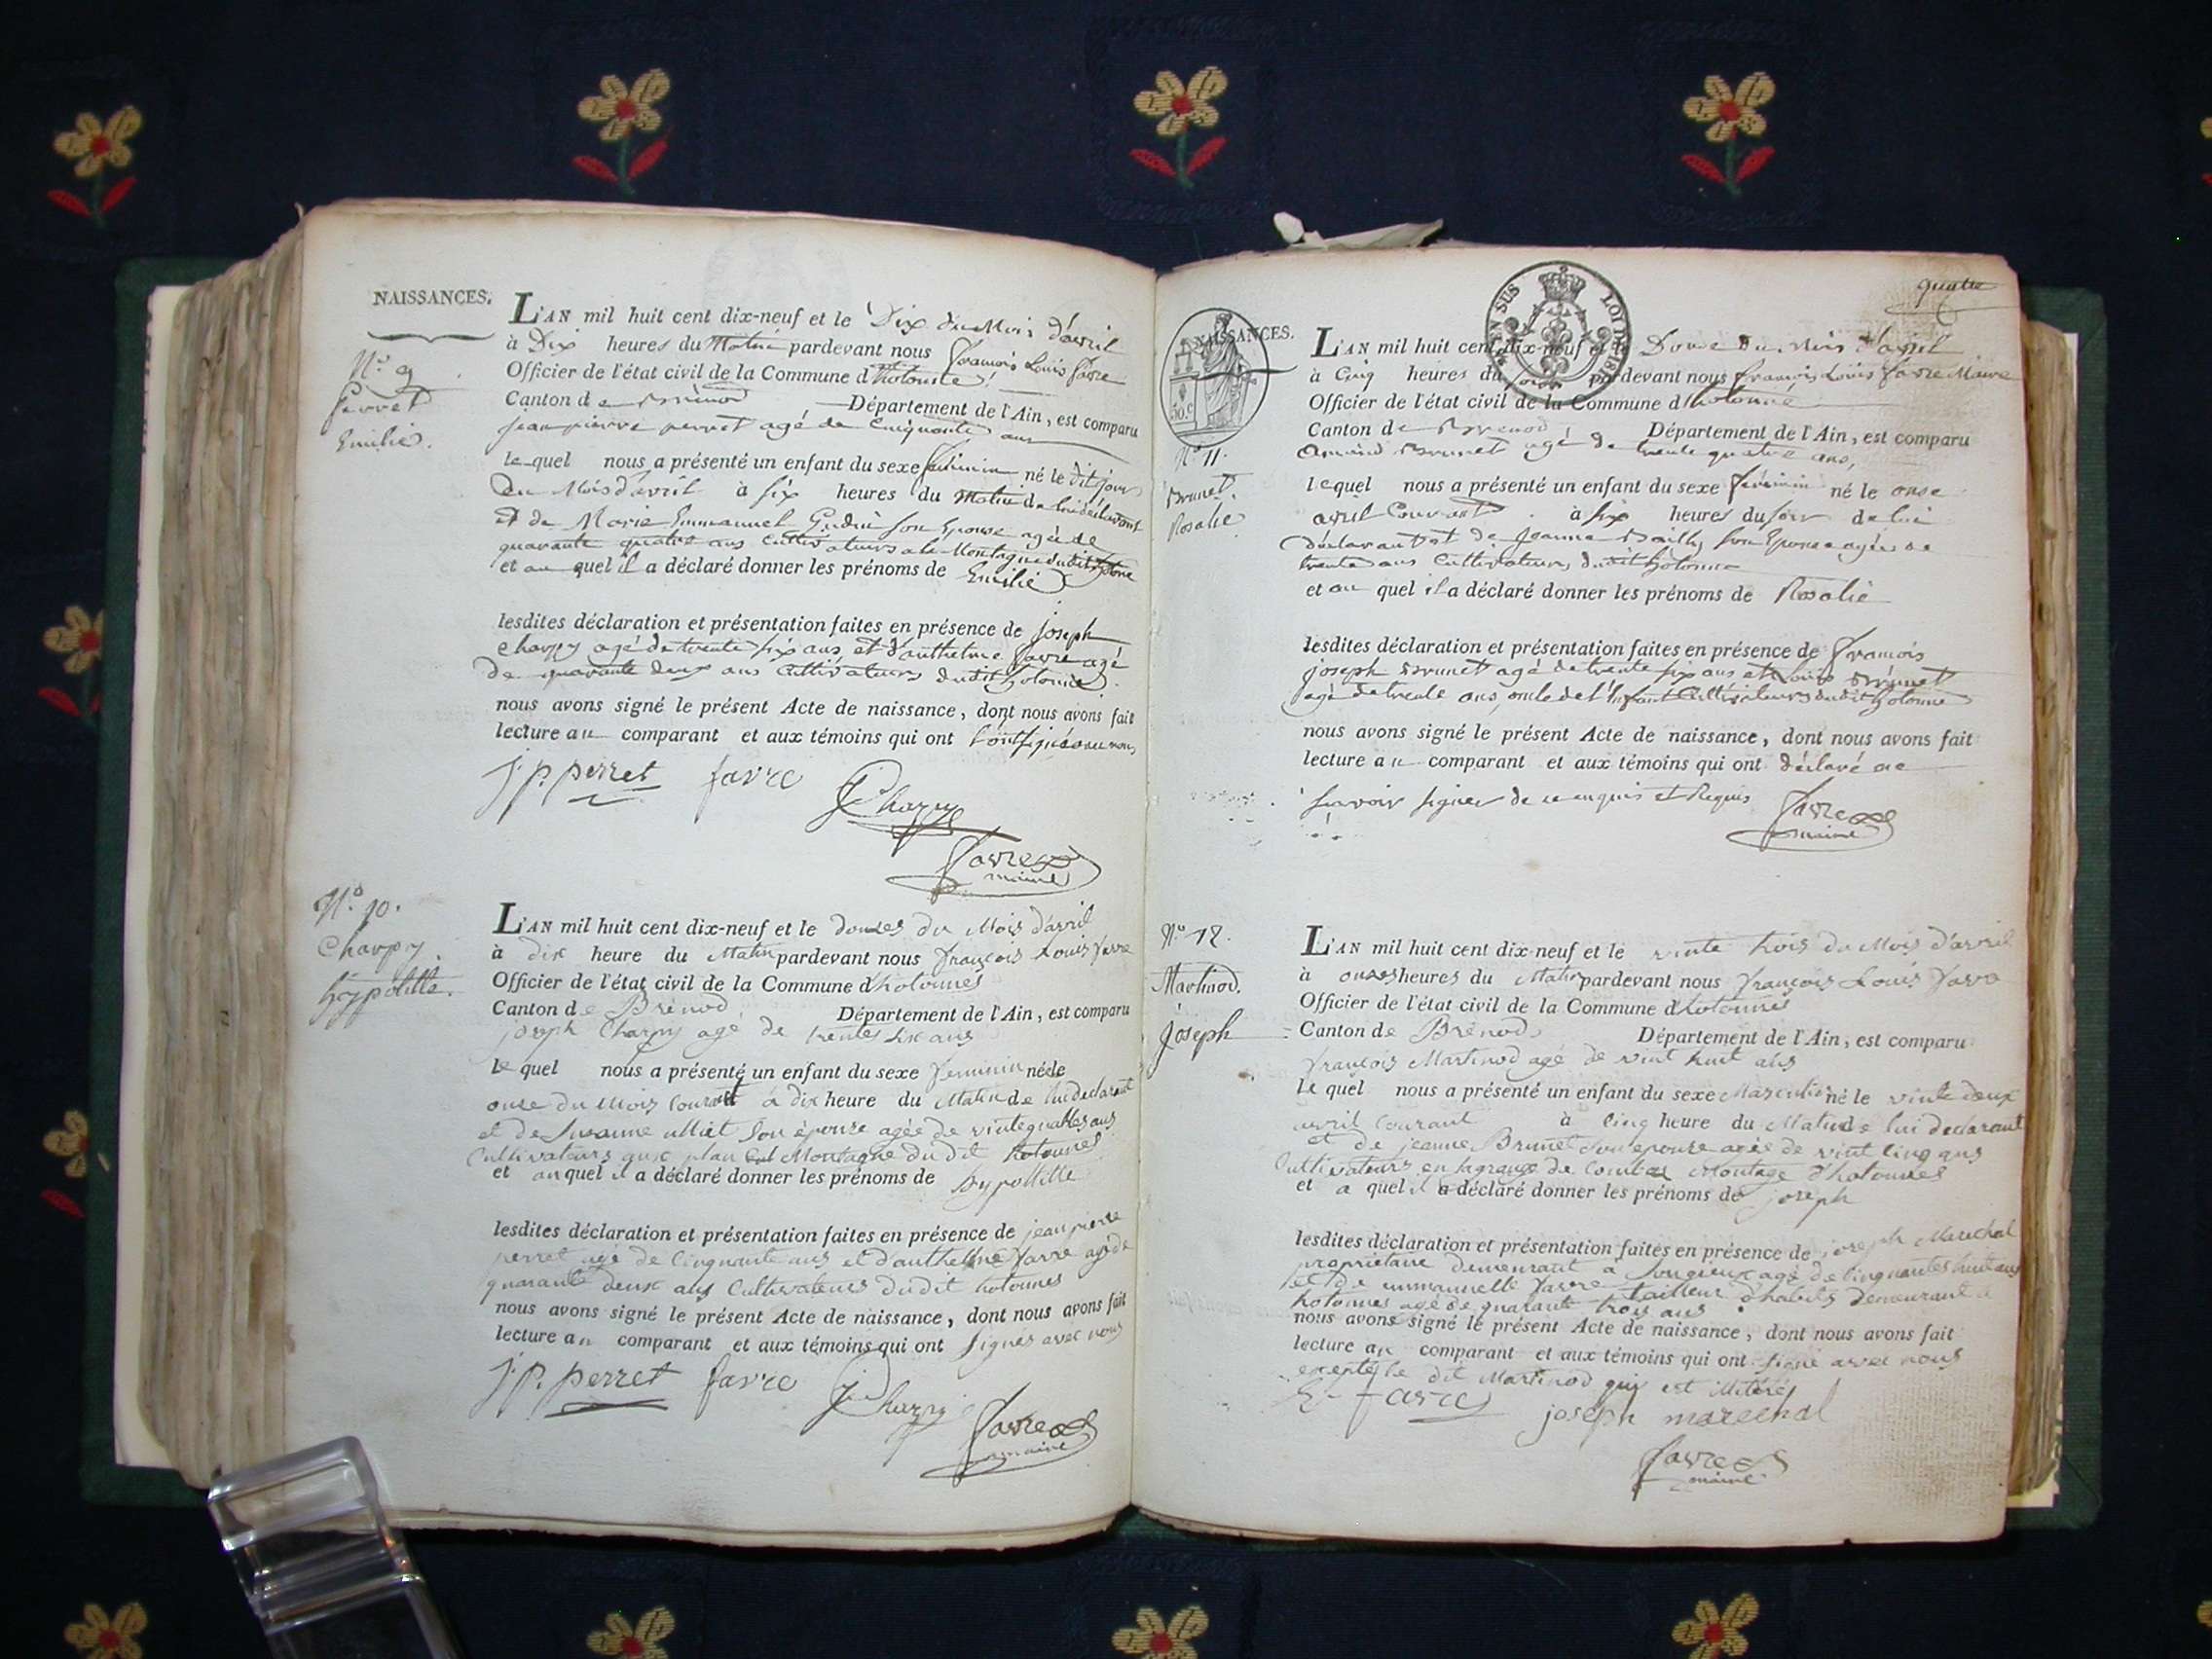 NAISSANCES.
N.º 9
Perret
Emilie.
L'AN mil huit cent dix-neuf et le Dix du Mois d'avril
à Dix heures du Matin pardevant nous françois Louis favre
Officier de l'état civil de la Commune d'hotonne
Canton de Brénod Département de l'Ain, est comparu
jean pierre perret agé de Cinquante ans
le quel nous a présenté un enfant du sexe féminin né le dit jour
du Mois d'avril à six heures du Matin de lui déclarant
et de Marie Emmanuel son Epouse agée de
quarante quatre ans Cultivateurs a la Montagne dudit hotone
et au quel il a déclaré donner les prénoms de Emilie
lesdites déclaration et présentation faites en présence de joseph
Charpy agé de trente six ans et d'anthelme favre agé
de quarante deux ans Cultivateurs dudit hotonne
nous avons signé le présent Acte de naissance, dont nous avons fait
lecture au comparant et aux témoins qui ont signé avec nous
j. p. perret favre
J Charpy
favre
maire
N.º 10.
Charpy
hypolitte.
L'AN mil huit cent dix-neuf et le douzes du Mois d'avril
à dix heure du Matin pardevant nous françois Louis favre
Officier de l'état civil de la Commune d'hotonnes
Canton de Brénod Département de l'Ain, est comparu
joseph Charpy agé de trentes six ans
le quel nous a présenté un enfant du sexe feminin né le
onze du Mois courant à dix heure du Matin de lui declarant
et de Suzanne son épouse agée de vinte quattes ans
Cultivateurs aux plan Montagne du dit hotonnes
et au quel il a déclaré donner les prénoms de hypollitte
lesdites déclaration et présentation faites en présence de jean pierre
perret agé de Cinquante ans et d'anthelme favre agé de
quarante deux ans Cultivateurs dudit hotonnes
nous avons signé le présent Acte de naissance, dont nous avons fait
lecture au comparant et aux témoins qui ont signés avec nous
j. p. perret favre J Charpy
favre
maire
quatre
EN SUS
LOI DE 18
NAISSANCES.
50.c
N.º 11.
Brunet
Rosalie
L'AN mil huit cent dix-neuf et le Douze du Mois d'avril
à Cinq heures du soir pardevant nous françois Louis favre Maire
Officier de l'état civil de la Commune d'hotonne
Canton de Brenod Département de l'Ain, est comparu
Brunet agé de trente quatre ans,
lequel nous a présenté un enfant du sexe féminin né le onze
avril Courant à six heures du soir de lui
déclarant et de Jeanne Bailly son Epouse agée de
trente ans Cultivateurs dudit hotonne
et au quel il a déclaré donner les prénoms de Rosalie
lesdites déclaration et présentation faites en présence de françois
joseph Brunet agé de trente six ans et Louis Brunet
agé de trente ans, oncle de l'Enfant Cultivateurs dudit hotonne
nous avons signé le présent Acte de naissance, dont nous avons fait
lecture au comparant et aux témoins qui ont déclaré ne
savoir signer de ce enquis et Requis
favre
maire
N.º 12.
Martinod.
joseph
L'AN mil huit cent dix-neuf et le vinte trois du Mois d'avril
à onzes heures du Matin pardevant nous françois Louis favre
Officier de l'état civil de la Commune d'hotonnes
Canton de Brénod Département de l'Ain, est comparu
françois Martinod agé de vint huit ans
le quel nous a présenté un enfant du sexe Masculin né le vinte deux
avril courant à cinq heure du Matin de lui declarant
et de jeanne Brunet son epouse agée de vint cinq ans
Cultivateurs en la grange de Montage d'hotonnes
et a quel il a déclaré donner les prénoms de joseph
lesdites déclaration et présentation faites en présence de joseph Marechal
propriétaire demeurant a Songieux agé de cinquantes huit ans
et de emmannuelle favre tailleur d'habits demeurant a
hotonnes agé de quarante trois ans
nous avons signé le présent Acte de naissance, dont nous avons fait
lecture au comparant et aux témoins qui ont signé avec nous
exepté le dit Martinod qui est illitéré
E favre
joseph marechal
favre
maire